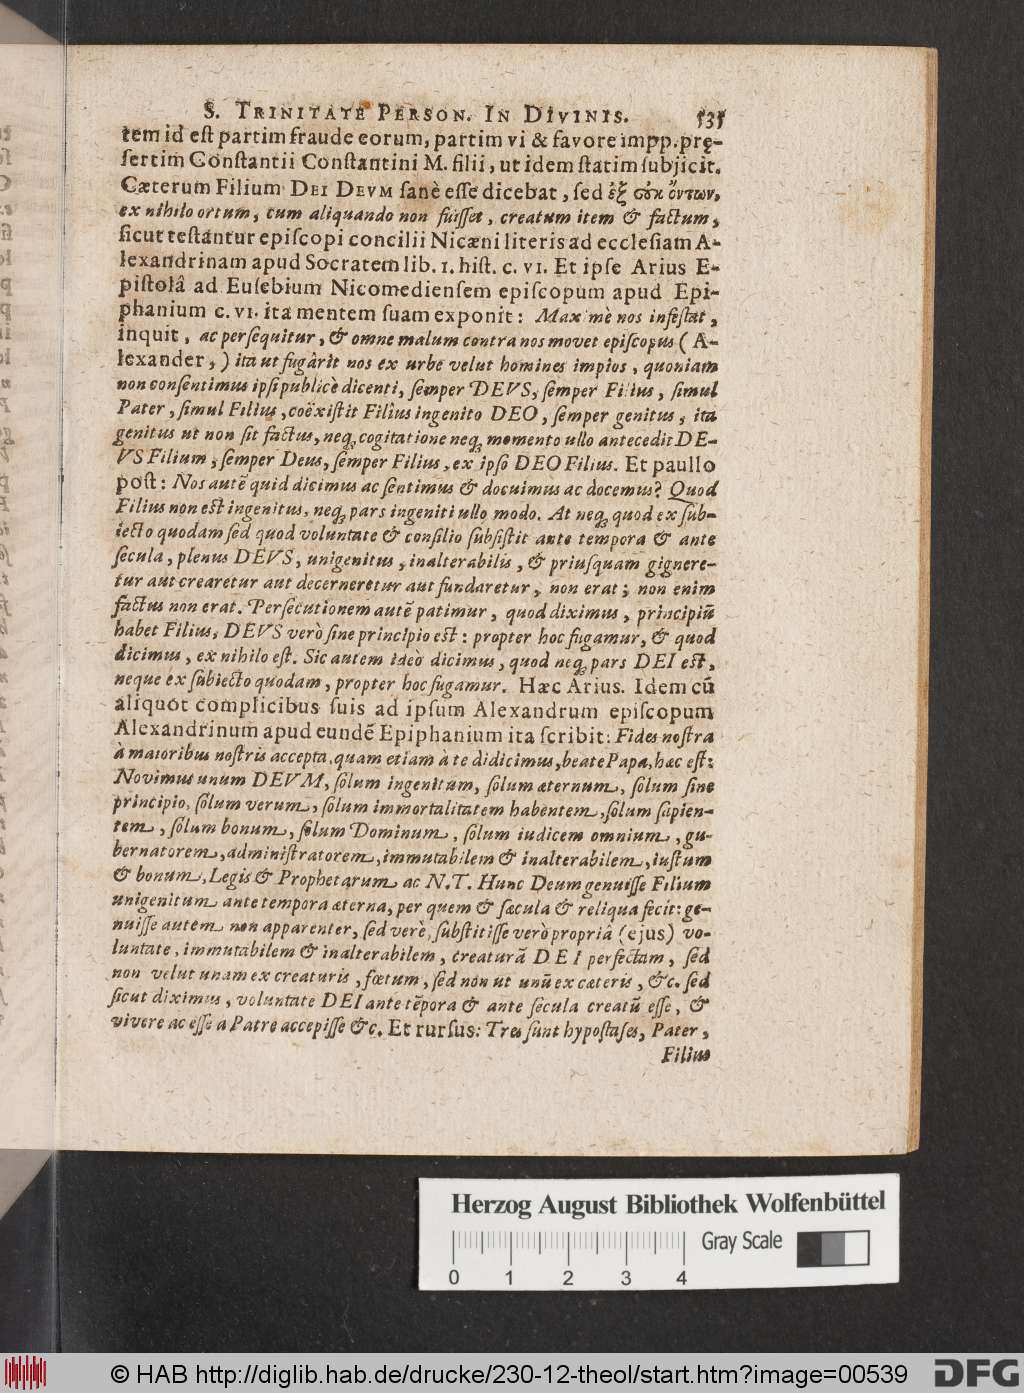 S. TRINITATE PERSON. IN DIVINIS. 535
tem id eſt partim fraude eorum, partim vi & favore impp. pręſ-
ſertim Conſtantii Conſtantini M. filii, ut idem ſtatim ſubjicit.
Cæterum Filium DEI DEVM ſanè eſſe dicebat, ſed ἐξ οὐκ ὄντων,
ex nihilo ortum, cum aliquando non fuiſſet, creatum item & factum,
ſicut teſtantur epiſcopi concilii Nicæni literis ad eccleſiam A-
lexandrinam apud Socratem lib. 1. hiſt. c. VI. Et ipſe Arius E-
piſtolâ ad Euſebium Nicomedienſem epiſcopum apud Epi-
phanium c. VI. ita mentem ſuam exponit: Maximè nos infeſtat,
inquit, ac perſequitur, & omne malum contra nos movet epiſcopus (A-
lexander,) ita ut fugârit nos ex urbe velut homines impios, quoniam
non conſentimus ipſi publicè dicenti, ſemper DEVS, ſemper Filius, ſimul
Pater, ſimul Filius, coëxiſtit Filius ingenito DEO, ſemper genitus, ita
genitus ut non ſit factus, neq; cogitatione neq; momento ullo antecedit DE-
VS Filium, ſemper Deus, ſemper Filius, ex ipſo DEO Filius. Et paullo
poſt: Nos autē quid dicimus ac ſentimus & docuimus ac docemus? Quod
Filius non eſt ingenitus, neq; pars ingeniti ullo modo. At neq; quod ex ſub-
iecto quodam ſed quod voluntate & conſilio ſubſiſtit ante tempora & ante
ſecula, plenus DEVS, unigenitus, inalterabilis, & priuſquam gignere-
tur aut crearetur aut decerneretur aut fundaretur, non erat; non enim
factus non erat. Perſecutionem autē patimur, quod diximus, principiū
habet Filius, DEVS verò ſine principio eſt: propter hoc fugamur, & quod
dicimus, ex nihilo eſt. Sic autem ideò dicimus, quod neq; pars DEI eſt,
neque ex ſubiecto quodam, propter hoc fugamur. Hæc Arius. Idem cū
aliquot complicibus ſuis ad ipſum Alexandrum epiſcopum
Alexandrinum apud eundē Epiphanium ita ſcribit: Fides noſtra
à maioribus noſtris accepta, quam etiam à te didicimus, beate Papa, hæc eſt:
Novimus unum DEVM, ſolum ingenitum, ſolum æternum, ſolum ſine
principio, ſolum verum, ſolum immortalitatem habentem, ſolum ſapien-
tem, ſolum bonum, ſolum Dominum, ſolum iudicem omnium, gu-
bernatorem, adminiſtratorem, immutabilem & inalterabilem, iuſtum
& bonum, Legis & Prophetarum ac N.T. Hunc Deum genuiſſe Filium
unigenitum ante tempora æterna, per quem & ſæcula & reliqua fecit: ge-
nuiſſe autem non apparenter, ſed verè, ſubſtitiſſe verò propriâ (ejus) vo-
luntate, immutabilem & inalterabilem, creaturā DEI perfectam, ſed
non velut unam ex creaturis, fœtum, ſed non ut unū ex cæteris, &c. ſed
ſicut diximus, voluntate DEI ante tēpora & ante ſecula creatū eſſe, &
vivere ac eſſe a Patre accepiſſe &c. Et rurſus: Tres ſunt hypoſtaſes, Pater,
Filius
Herzog August Bibliothek Wolfenbüttel
Gray Scale
0 1 2 3 4
© HAB http://diglib.hab.de/drucke/230-12-theol/start.htm?image=00539
DFG